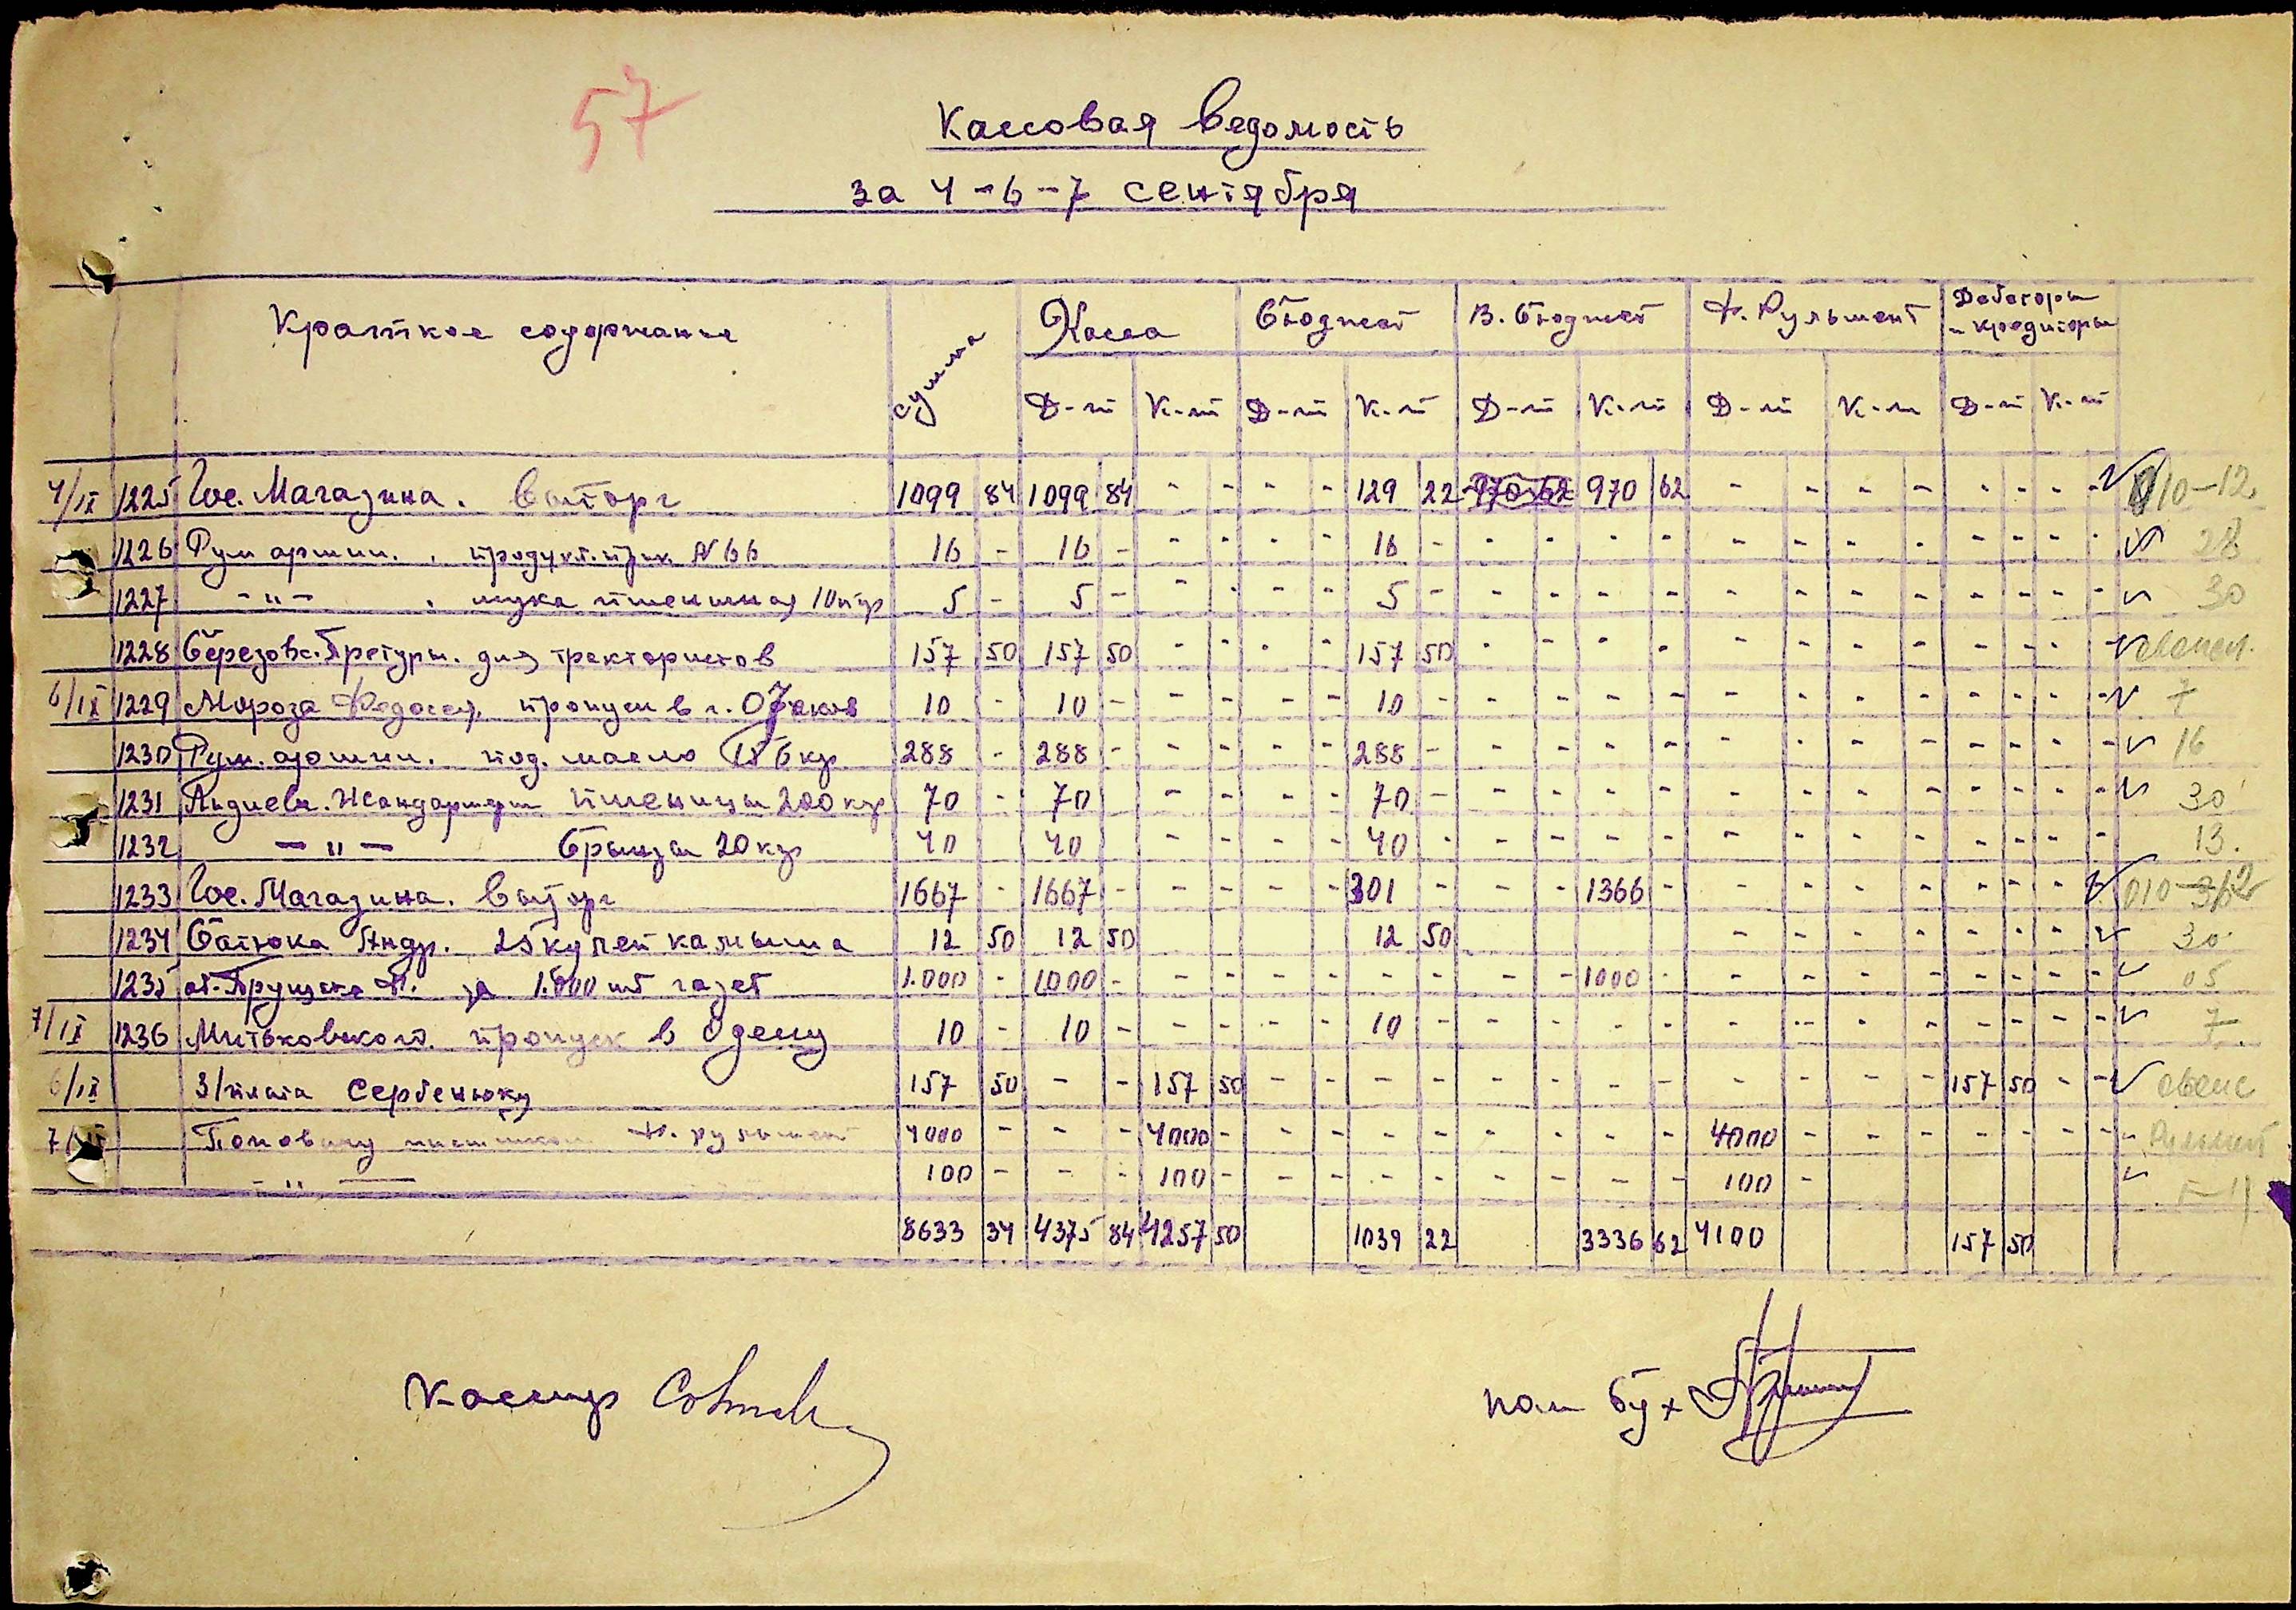 57
Кассовая ведомость
за 4-6-7 сентября
Краткое содержание сумма Касса Бюджет В. Бюджет Ф. Рульмент Дебеторы и кредиторы
Д-т К-т Д-т К-т Д-т К-т Д-т К-т Д-т К-т
4/IX 1225 Гос. Магазина. 1099 84 1099 84 - - - - 129 22 970 62 970 62 - - - - - - - - 010-12
1226 Рум армии. продукт. № 66 16 - 16 - - - - - 16 - - - - - - - - - - - - - 28
1227 -"- мука пшеничная 10 кгр 5 - 5 - - - - - 5 - - - - - - - - - - - - - 30
1228 Березовс. Претуры. для трактористов 157 50 157 50 - - - - 157 50 - - - - - - - - - - - -
6/IX 1229 Мороза Федосей, пропуск в г. Очаков 10 - 10 - - - - - 10 - - - - - - - - - - - - - 7
1230 Рум. армии. под. масло 6 кгр 288 - 288 - - - - - 288 - - - - - - - - - - - - - 16
1231 Жандармерии пшеницы 200 кгр 70 - 70 - - - - 70 - - - - - - - - - - - - - 30
1232 -"- брынзы 20 кгр 40 40 - - - - 40 - - - - - - - - - - - - - 13.
1233 Гос. Магазина. 1667 - 1667 - - - - - 301 - - - 1366 - - - - - - - - - 010
1234 Батюка Андр. 25 кулей камыша 12 50 12 50 12 50 - - - - - - - - 30
1235 от. за 1.000 шт газет 1.000 - 1000 - - - - - - - - - 1000 - - - - - - - - - 05
7/IX 1236 пропуск в Одессу 10 - 10 - - - - - 10 - - - - - - - - - - - - - 7
6/IX З/плата Сербенюку 157 50 - - 157 50 - - - - - - - - - - - - 157 50 - -
7/IX Поповичу Ф. рульмент 4000 - - - 4000 - - - - - - - - - 4000 - - - - - - -
-"- 100 - - - 100 - - - - - - - - - 100 -
8633 34 4375 84 4257 50 1039 22 3336 62 4100 157 50
Кассир
пом бух